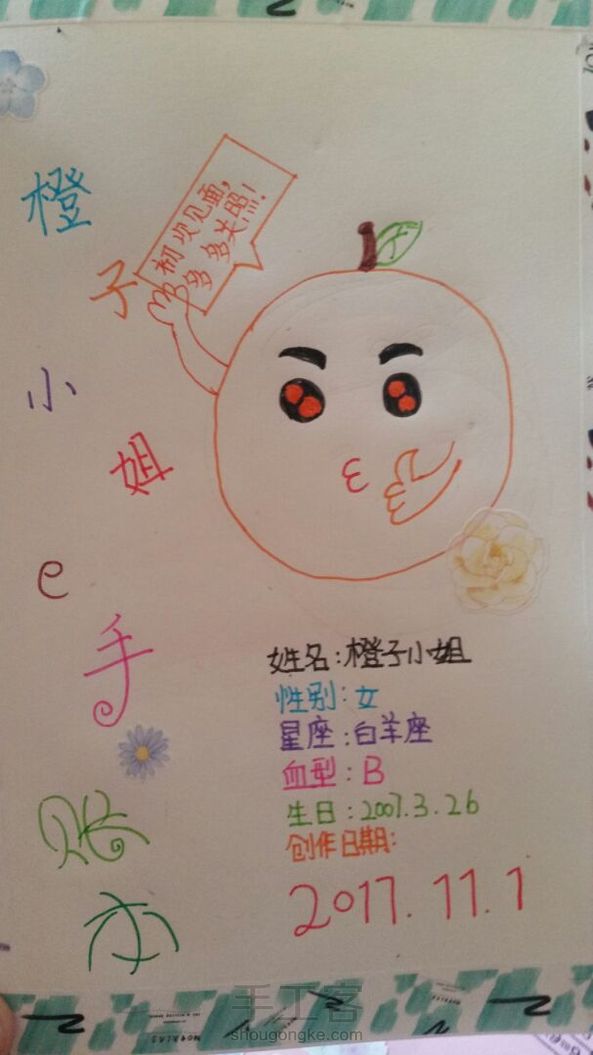 橙
子
小
姐
e
手
账
本
初次见面,
多多关照!
姓名:橙子小姐
性别:女
星座:白羊座
血型:B
生日:2007.3.26
创作日期:
2017.11.1
手工客
shougongke.com